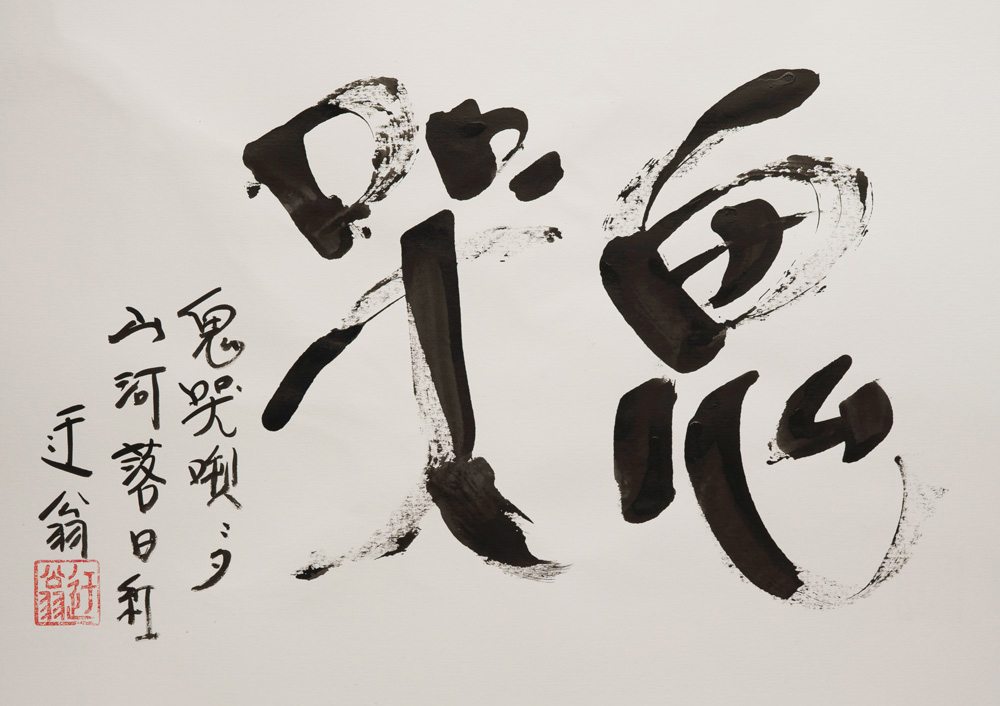 鬼哭
鬼哭々夕
山河落日紅
迂翁
迂翁